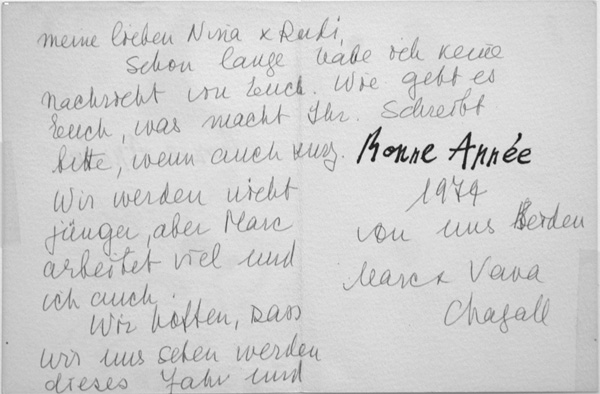 meine lieben Nina & Rudi,
Schon lange habe ich keine
nachricht von Euch. Wie geht es
Euch, was macht Ihr. Schreibt
bitte, wenn auch kurz. Bonne Année
Wir werden nicht
jünger, aber Marc
arbeitet viel und
ich auch.
Wir hoffen, dass
wir uns sehen werden
dieses Jahr und
1974
von uns Beiden
Marc & Vava
Chagall